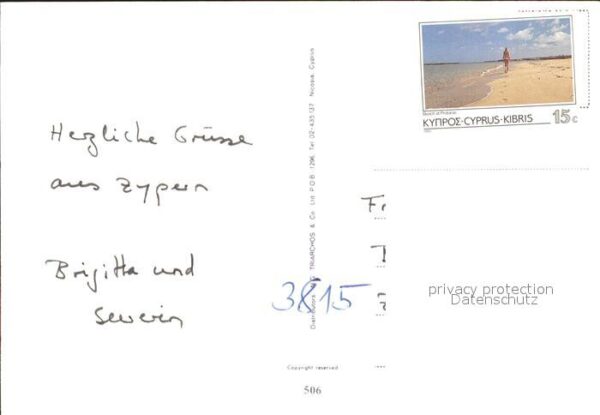 Herzliche Grüsse
aus Zypern
Brigitta und
Severin
Distributors TRIARCHOS & Co Ltd P.O.B. 1296, Tel 02-435137 Nicosia, Cyprus
3815
Copyright reserved
506
ΚΥΠΡΟΣ·CYPRUS·KIBRIS 15c
privacy protection
Datenschutz